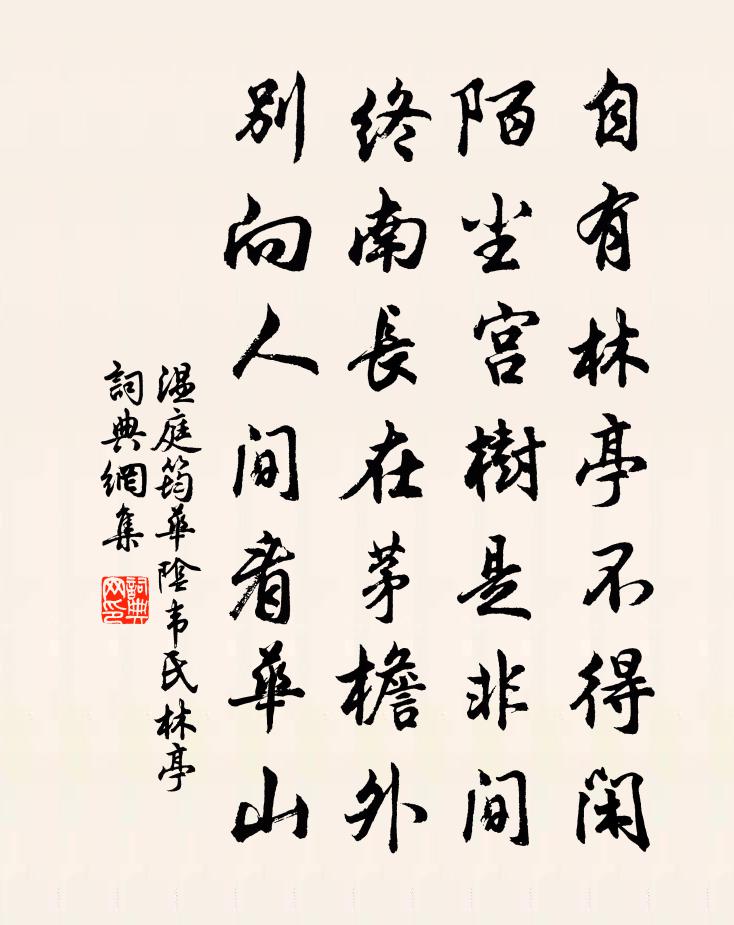 自有林亭不得閑
陌尘宫樹是非间
终南長在茅檐外
别向人间看華山
温庭筠華陰韦氏林亭
詞典網集
詞典
网印